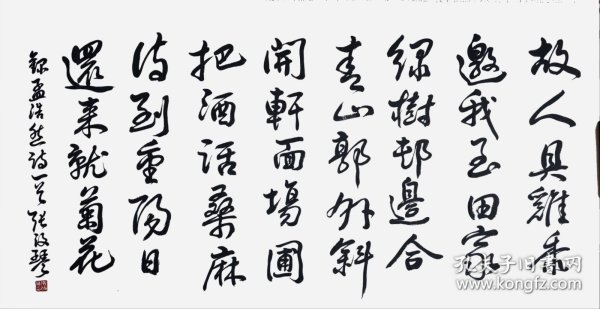 故人具雞黍
邀我至田家
綠樹邨邊合
青山郭外斜
開軒面場圃
把酒話桑麻
待到重陽日
還來就菊花
錄孟浩然詩一首 張政琴
孔夫子旧书网
www.kongfz.com